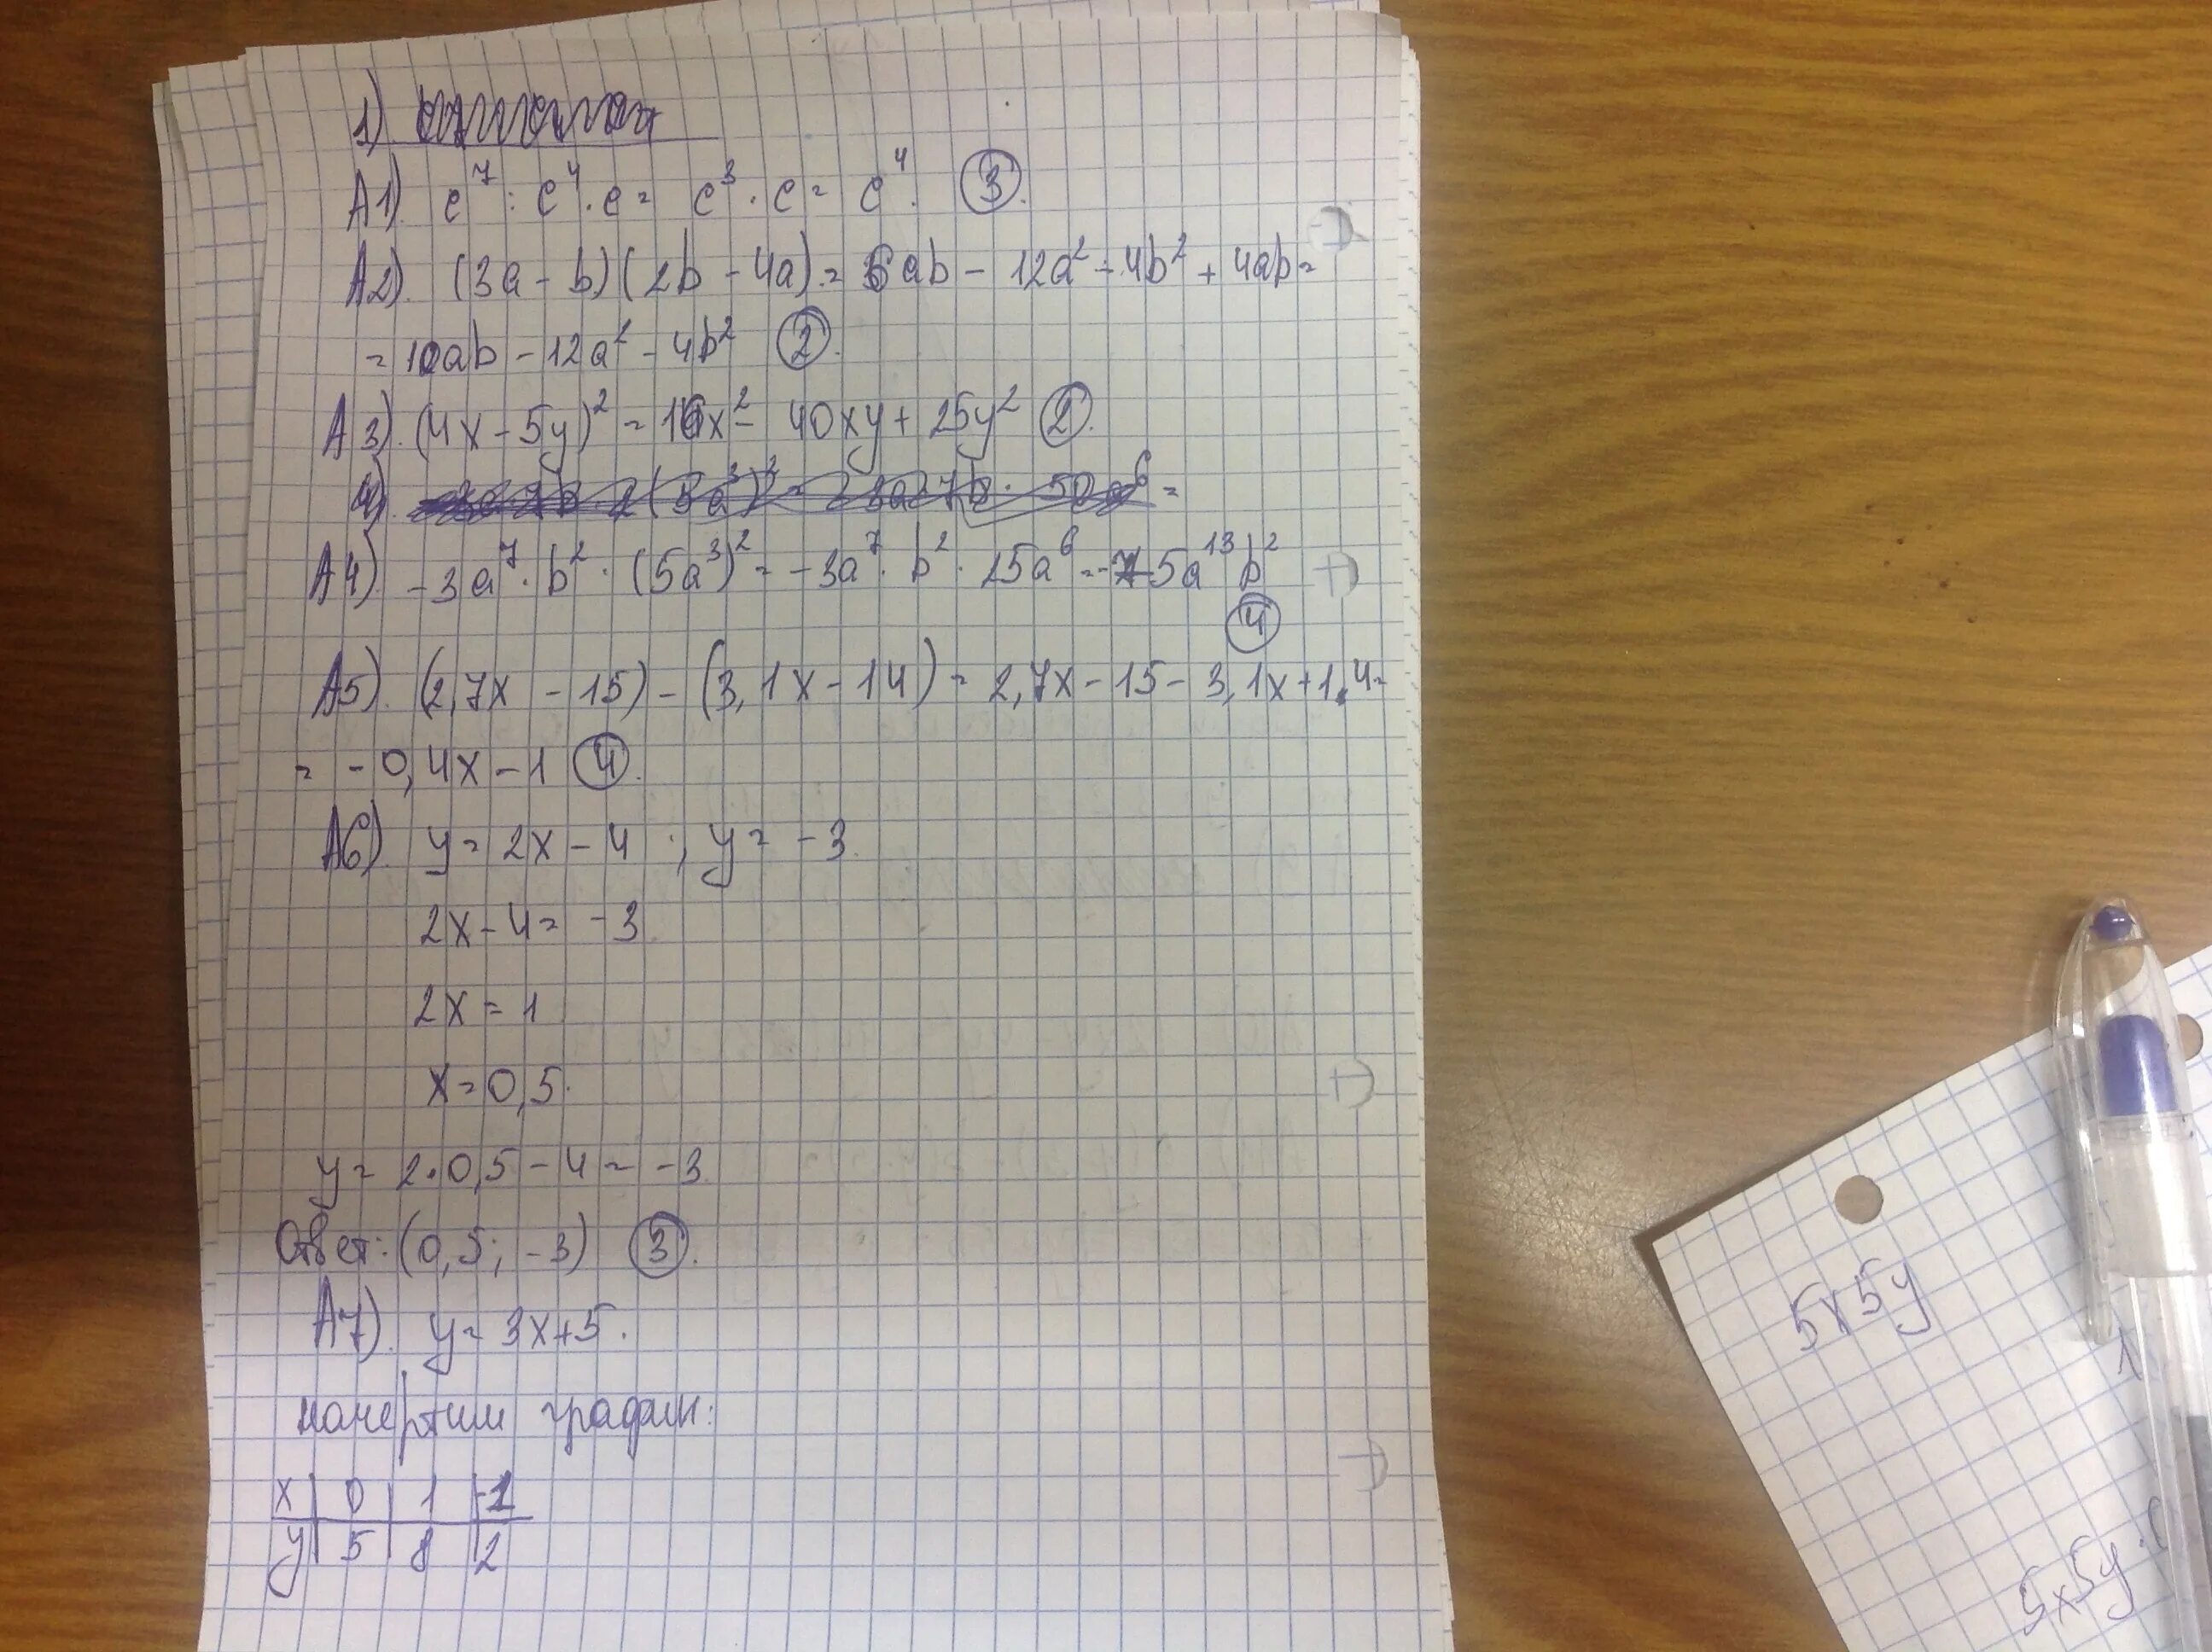 1)
А1). c⁷ : c⁴ · c = c³ · c = c⁴. ③.
А2). (3a - b)(2b - 4a) = 6ab - 12a² - 4b² + 4ab =
= 10ab - 12a² - 4b² ②.
А3). (4x - 5y)² = 16x² - 40xy + 25y² ②.
4).
А4). -3a⁷ · b² · (5a³)² = -3a⁷ · b² · 25a⁶ = -75a¹³b²
④
А5). (2,7x - 15) - (3,1x - 14) = 2,7x - 15 - 3,1x + 1,4 =
= -0,4x - 1 ④.
А6). y = 2x - 4 ; y = -3.
2x - 4 = -3.
2x = 1
x = 0,5.
y = 2·0,5 - 4 = -3.
Ответ: (0,5; -3) ③.
А7). y = 3x+5.
начертим график:
x | 0 | 1 | -1
y | 5 | 8 | 2
5x5y
5x5y·(